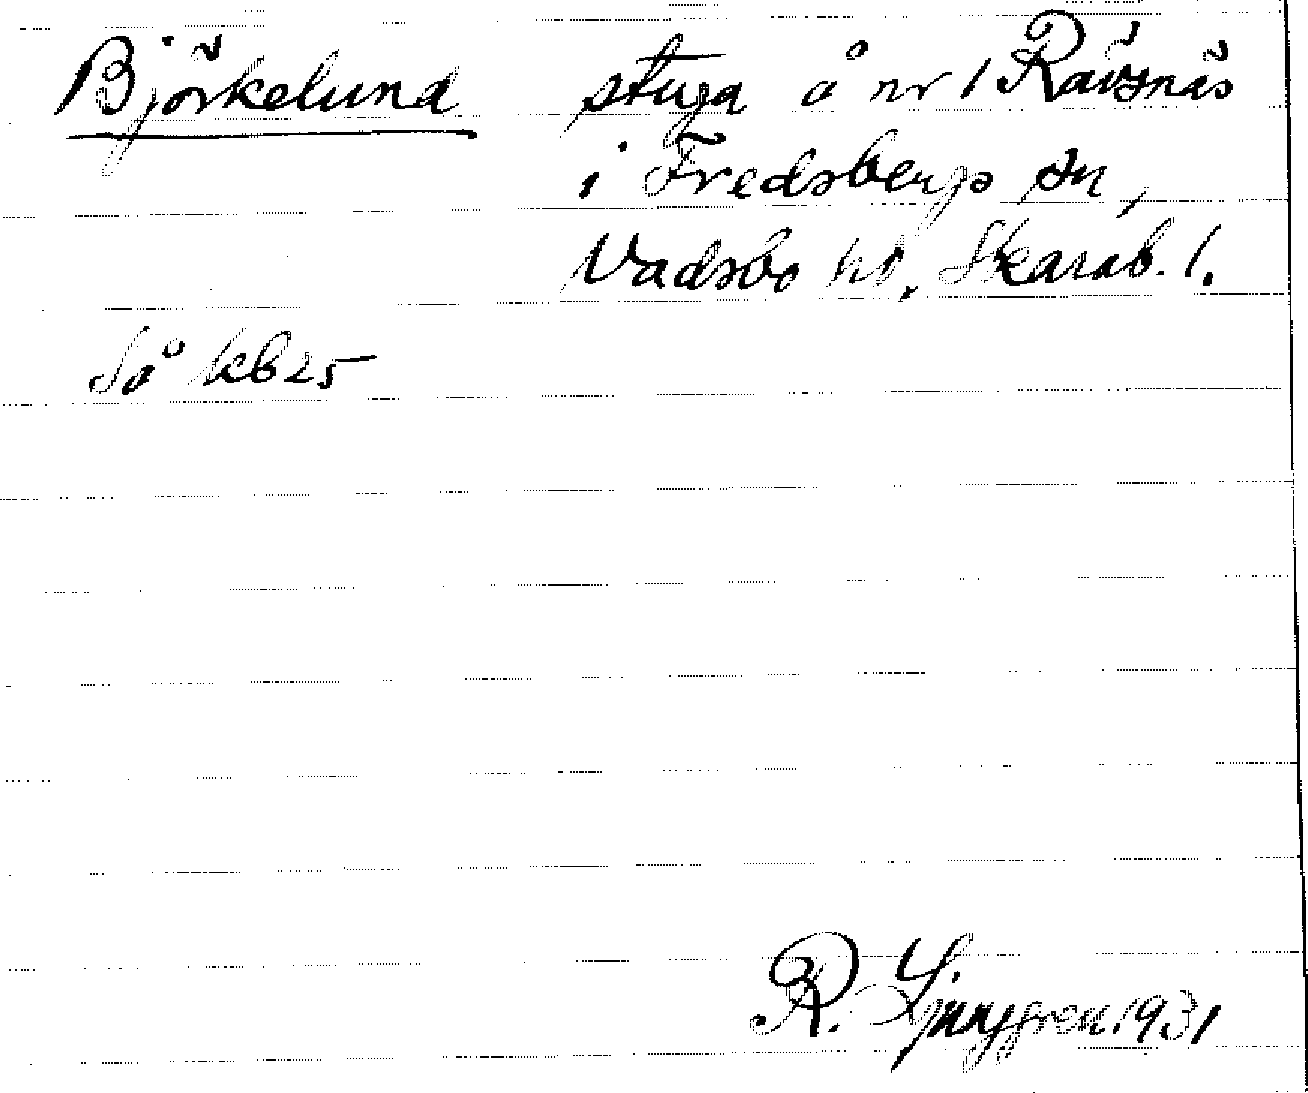 Björkelund stuga å nr 1 Rävsnäs
i Fredsbergs sn,
Vadsbo hd, Skarab. l.
Så kb 25
R. Ljunggren 1931